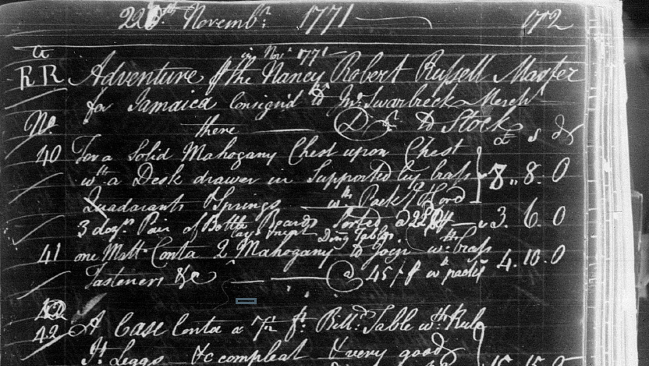 22 Novembr. 1771 172
in Novr 1771
RR Adventure ⅌ the Nancy Robert Russell Master
for Jamaica Consign'd to Mr. Swarbreck Merch
No there Dr. to Stock £ s d
40 For a Solid Mahogany Chest upon Chest
wth a Desk drawer in Supported by brass 8,, 8. 0
Quadarants & Springs wth Pack
3 doz Pair of Bottle Boards Sorted a 22 3. 6. 0
Large Dining Tables
41 one Matt Conta 2 Mahogany to join wth brass
Fasteners &c @ 45/ ⅌ wth packg 4. 10. 0
42
42 A Case Conta a 7 ft Billd Table wth Rule
Jt Leggs &c compleat & very good
15. 15. 0